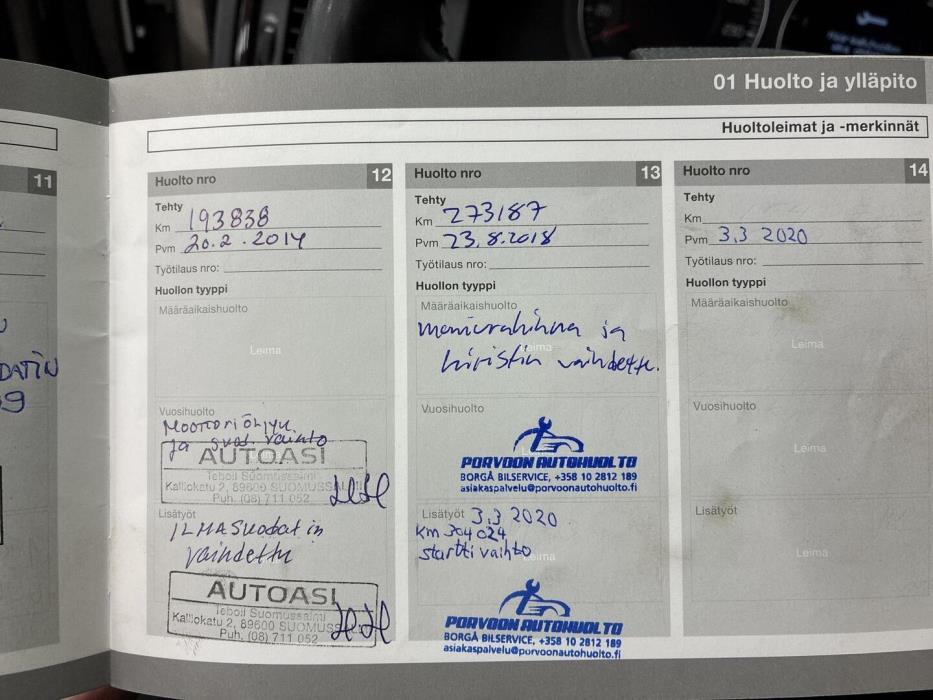 01 Huolto ja ylläpito
Huoltoleimat ja -merkinnät
11
DATIN
Huolto nro 12
Tehty
Km 193838
Pvm 20.2.2014
Työtilaus nro:
Huollon tyyppi
Määräaikaishuolto
Leima
Vuosihuolto
Moottoriöljyn
ja suod. vaihto
AUTOASI
Teboil Suomussalmi
Kalliokatu 2, 89600 SUOMUSSALMI
Puh. (08) 711 052
Lisätyöt
ILMAsuodatin
vaihdettu
AUTOASI
Teboil Suomussalmi
Kalliokatu 2, 89600 SUOMUSS
Puh. (08) 711 052
Huolto nro 13
Tehty
Km 273187
Pvm 23.8.2018
Työtilaus nro:
Huollon tyyppi
Määräaikaishuolto
moniurahihna ja
Leima
kiristin vaihdettu.
Vuosihuolto
Leima
PORVOON AUTOHUOLTO
BORGÅ BILSERVICE, +358 10 2812 189
asiakaspalvelu@porvoonautohuolto.fi
Lisätyöt 3.3 2020
Km 304024
startti vaihto
Leima
PORVOON AUTOHUOLTO
BORGÅ BILSERVICE, +358 10 2812 189
asiakaspalvelu@porvoonautohuolto.fi
Huolto nro 14
Tehty
Km
Pvm 3.3 2020
Työtilaus nro:
Huollon tyyppi
Määräaikaishuolto
Leima
Vuosihuolto
Leima
Lisätyöt
Leima